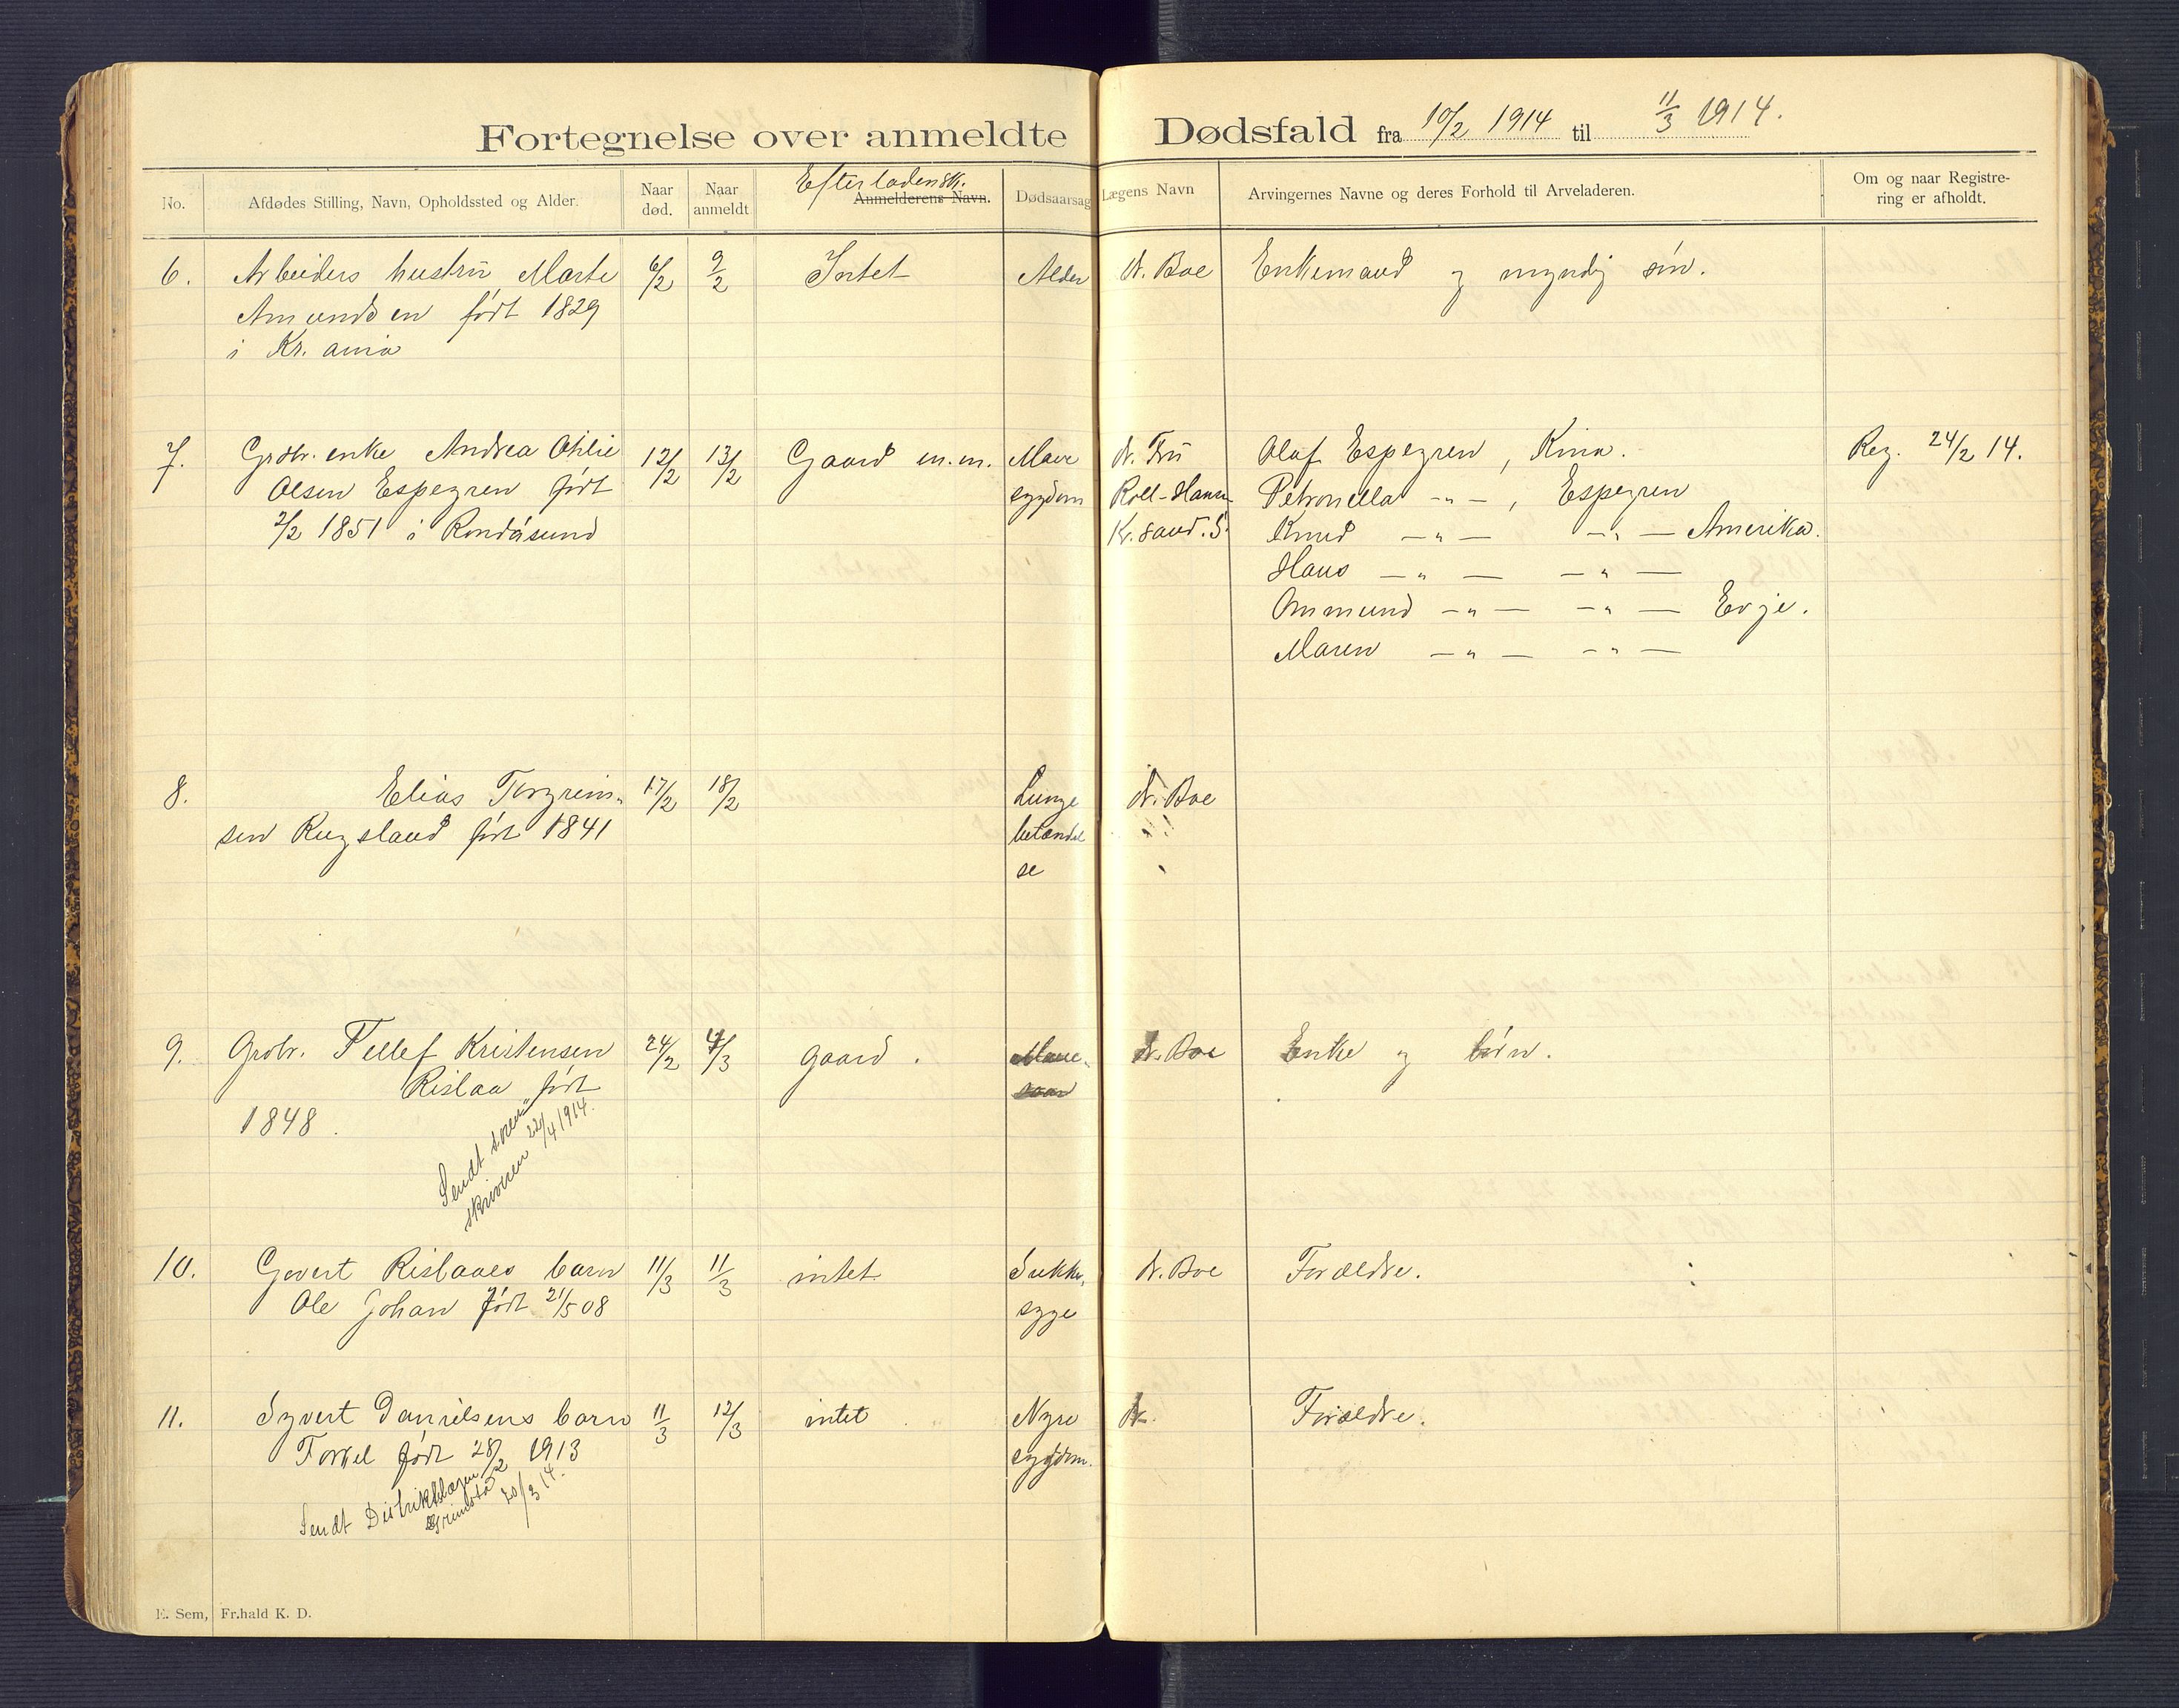 Fortegnelse over anmeldte Dødsfald fra 10/2 1914 til 11/3 1914.
No.
Afdødes Stilling, Navn, Opholdssted og Alder.
Naar død.
Naar anmeldt
Efterladensk.
Anmelderens Navn.
Dødsaarsag
Lægens Navn
Arvingernes Navne og deres Forhold til Arveladeren.
Om og naar Registre-
ring er afholdt.
6. Arbeiders hustru Marte 6/2 9/2 Intet Alder dr. Boe Enkemand og myndig søn.
Amundsen født 1829
i Kr. ania
7. Grdbr. enke Andrea Othlie 12/2 13/2 Gaard m.m. Mave dr. Fru Olaf Espegren, Kina. Reg. 24/2 14.
Olsen Espegren født sygdom Roll-Hansen Petronella -"-, Espegren
2/2 1851 i Randøsund Kr.sand. S. Knud -"- -"- Amerika.
Hans -"- -"-
Ommund -"- -"- Evje.
Maren -"- -"-
8. Elias Torgrim- 17/2 18/2 Lunge dr. Boe
sen Rugsland født 1841 betændel
se
9. Grbr. Tellef Kristensen 24/2 4/3 gaard. Mave- dr. Boe Enke og børn.
Rislaa født saar
1848.
Sendt soren-
skriveren 22/4 1914.
10. Govert Rislaaes barn 11/3 11/3 intet Sukker dr. Boe Forældre.
Ole Johan født 21/5 08 syge
11. Syvert Danielsens barn 11/3 12/3 intet Nyre dr. Forældre.
Torkel født 28/2 1913 sygdom.
Sendt Distriktslægen
Grimstad 20/3 14.
E. Sem, Fr.hald K. D.